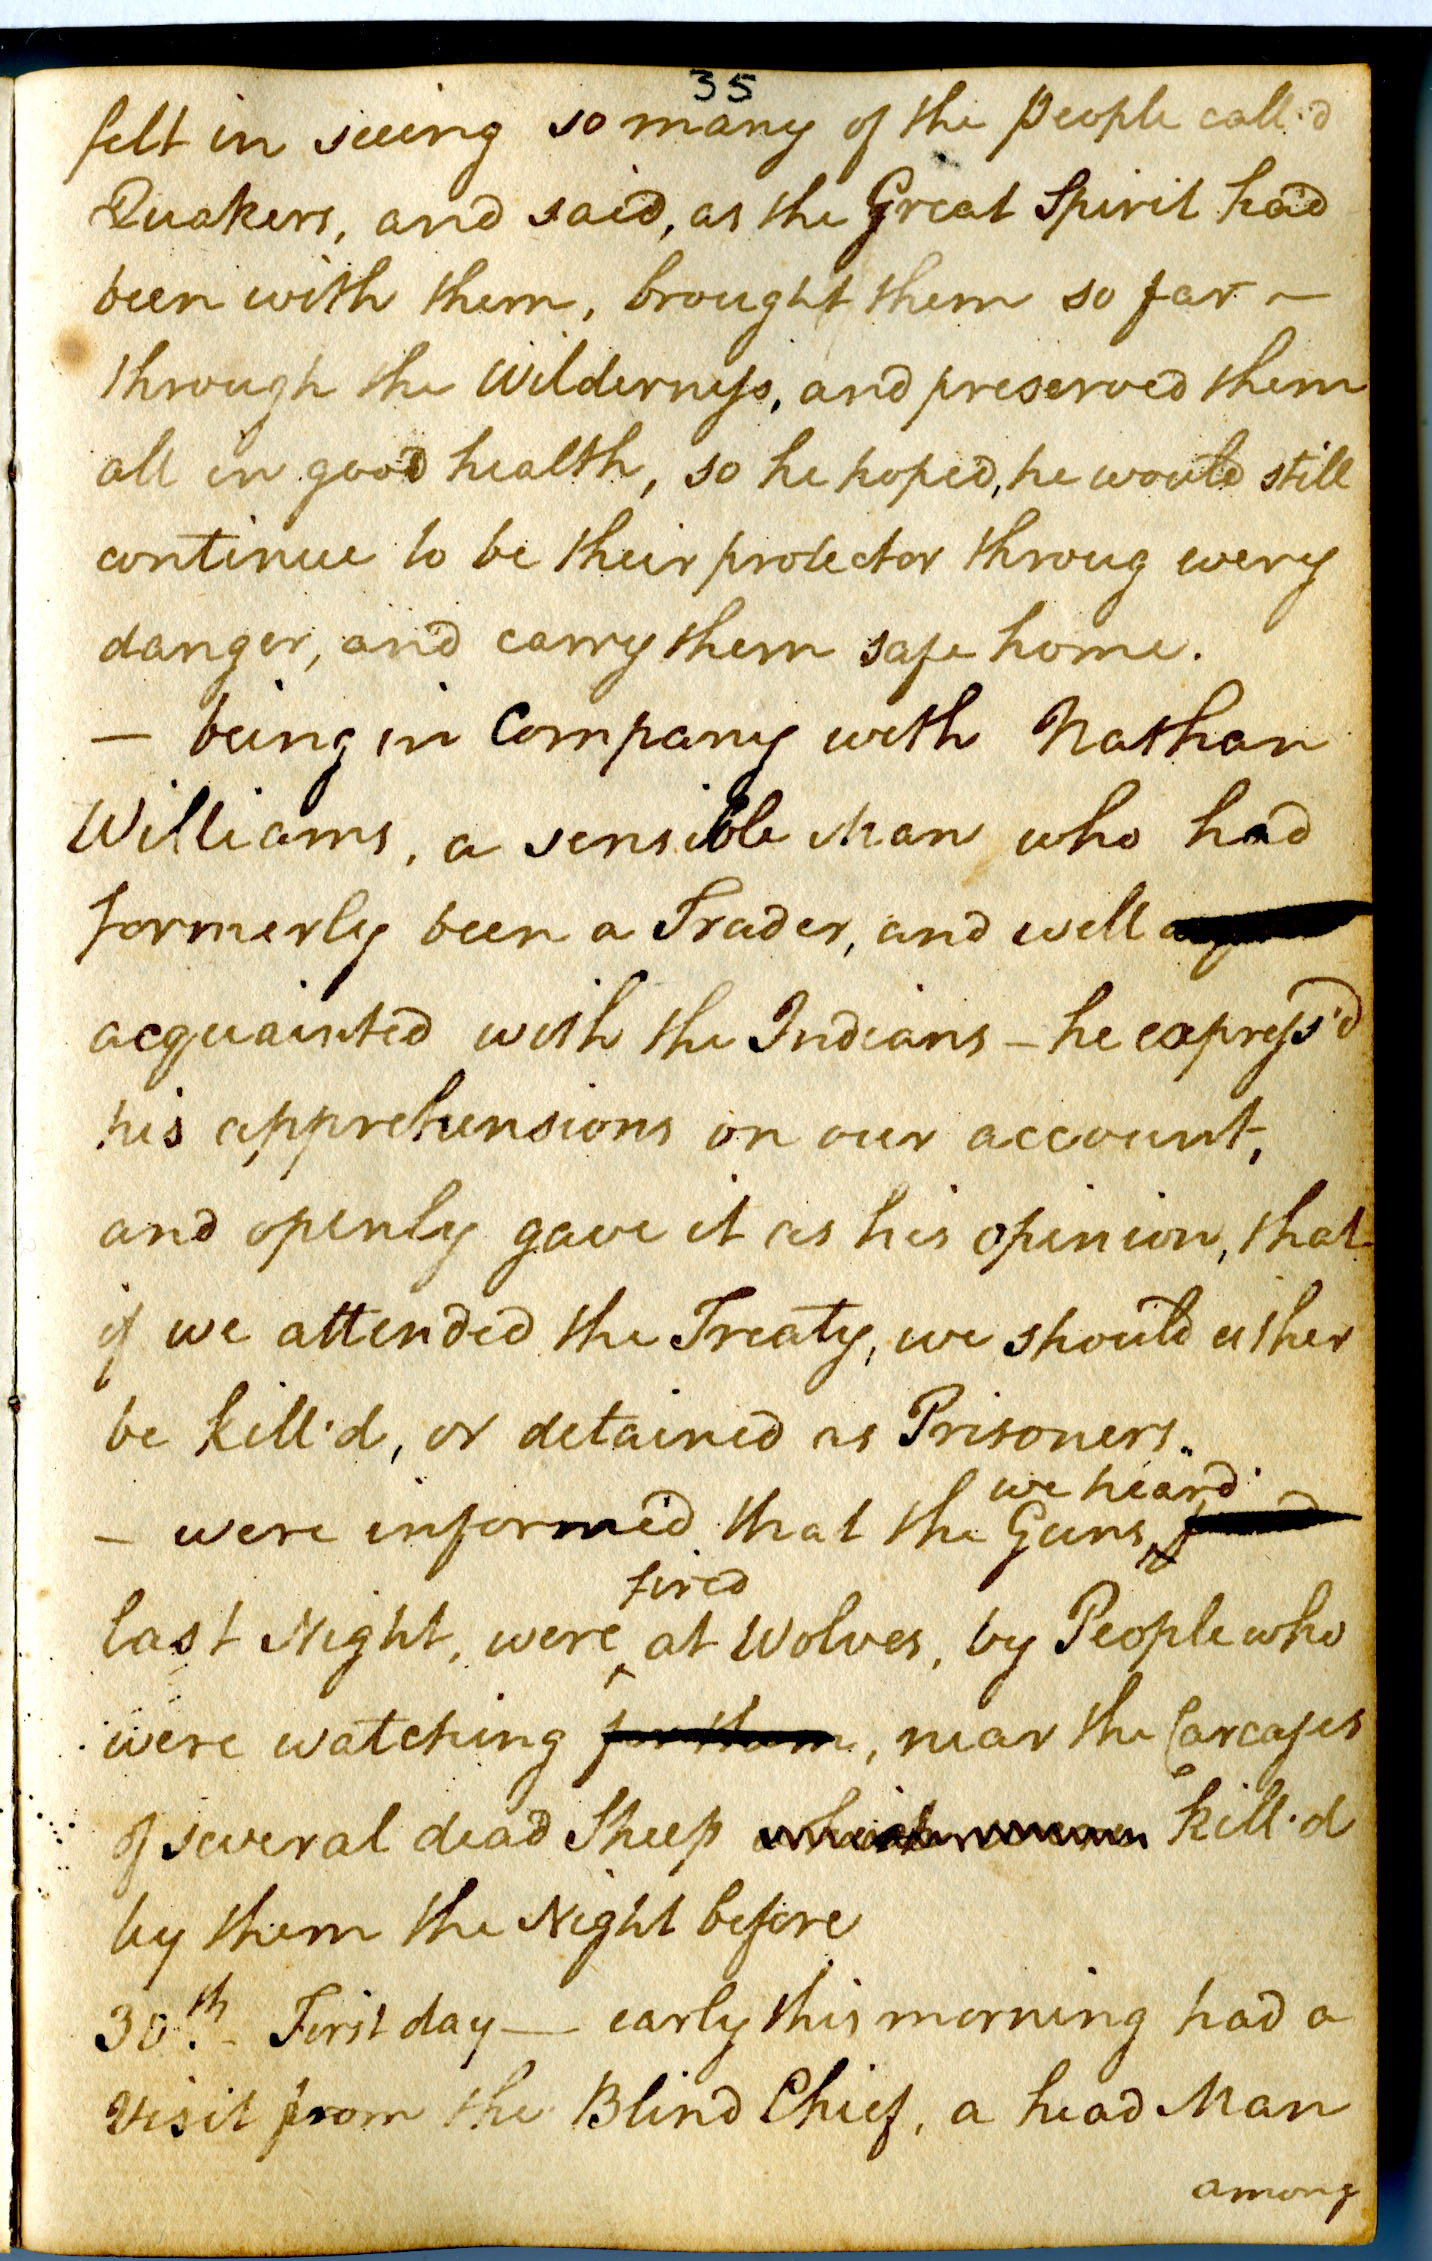 35
felt in seeing so many of the People call'd
Quakers, and said, as the Great Spirit had
been with them, brought them so far -
through the Wilderness, and preserved them
all in good health, so he hoped, he would still
continue to be their protector throug every
danger, and carry them safe home.
— being in Company with Nathan
Williams, a sensible Man who had
formerly been a Trader, and well
acquainted with the Indians - he express'd
his apprehensions on our account,
and openly gave it as his opinion, that
if we attended the Treaty, we should either
be kill'd, or detained as Prisoners.
we heard
- were informed that the Guns
fired
last Night, were at Wolves, by People who
were watching for them, near the Carcases
of several dead Sheep which kill'd
by them the Night before
30th. First day — early this morning had a
visit from the Blind Chief, a head Man
among